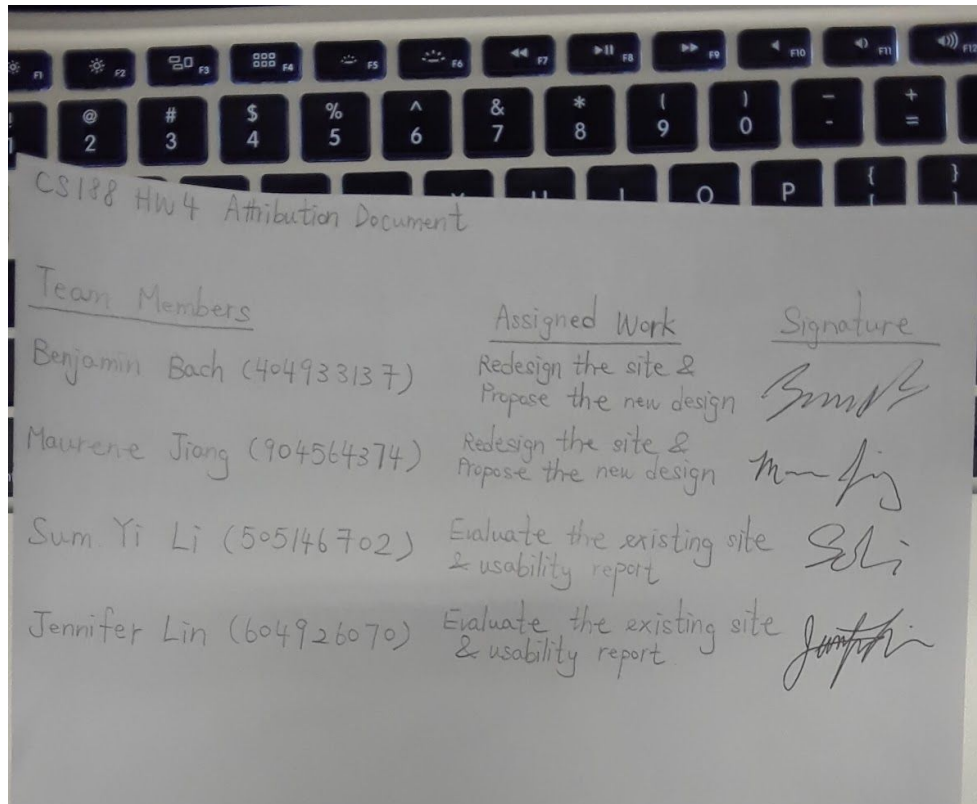 F1 F2 F3 F4 F5 F6 F7 F8 F9 F10 F11 F12
@ # $ % ^ & * ( ) - +
2 3 4 5 6 7 8 9 0 - =
O P { }
CS188 HW4 Attribution Document
Team Members Assigned Work Signature
Benjamin Bach (404933137) Redesign the site &
Propose the new design
Maurene Jiang (904564374) Redesign the site &
Propose the new design
Sum Yi Li (505146702) Evaluate the existing site
& usability report
Jennifer Lin (604926070) Evaluate the existing site
& usability report